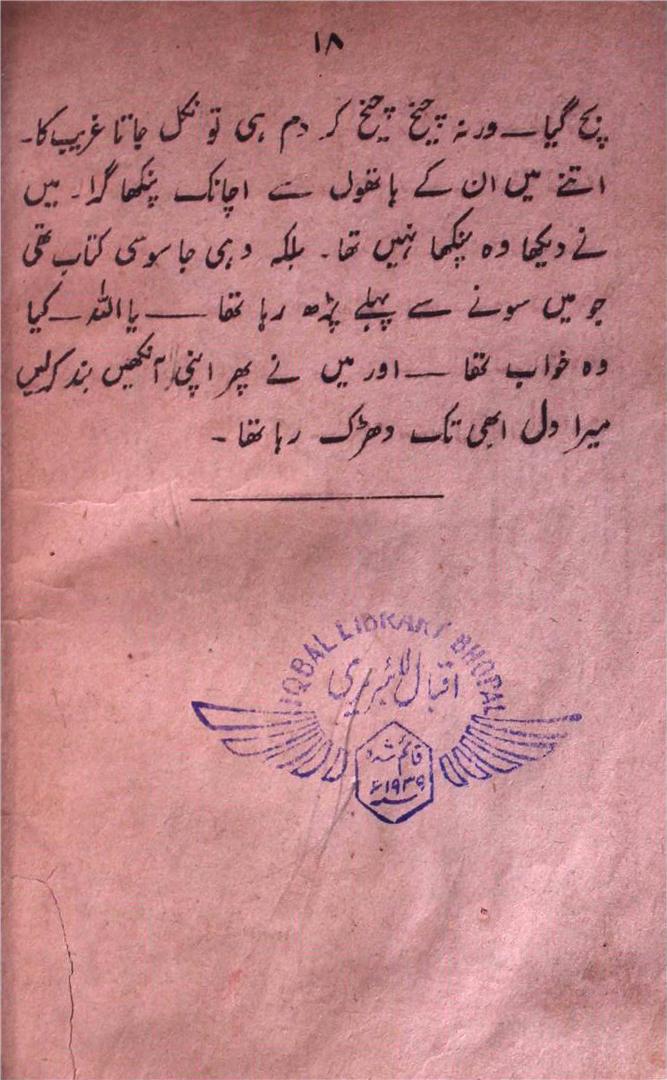 ۱۸
بچ گیا ــ ورنہ چیخ چیخ کر دم ہی تو نکل جاتا غریب کا۔
اتنے میں ان کے ہاتھوں سے اچانک پنکھا گرا۔ میں
نے دیکھا وہ پنکھا نہیں تھا۔ بلکہ وہی جاسوسی کتاب تھی
جو میں سونے سے پہلے پڑھ رہا تھا ــــ یا اللہ ــ کیا
وہ خواب تھا ــ اور میں نے پھر اپنی آنکھیں بند کرلیں
میرا دل ابھی تک دھڑک رہا تھا ۔
IQBAL LIBRARY BHOPAL
اقبال لائبریری
قائم شدہ
۱۹۳۹ء